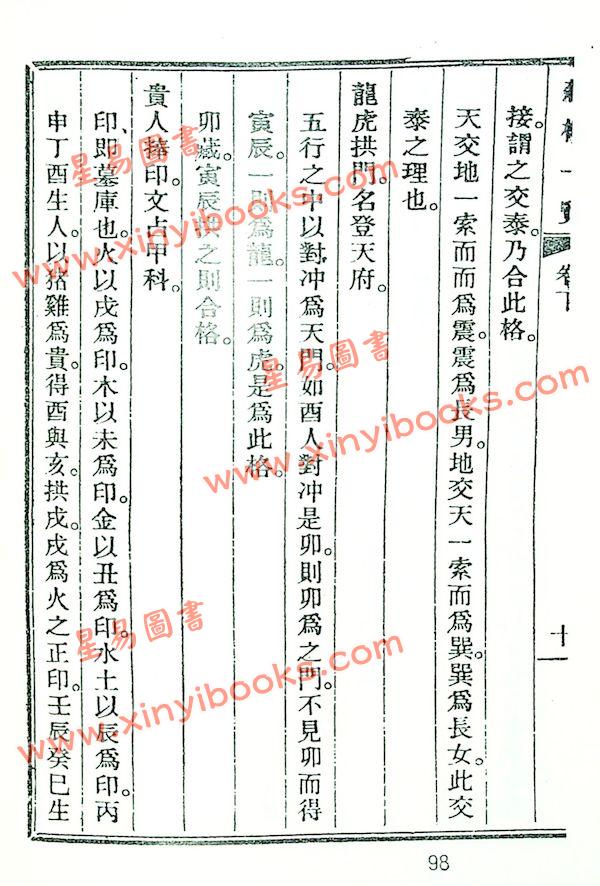 卷下
十
接。謂之交泰。乃合此格。
天交地一索而而爲震。震爲長男。地交天一索而爲巽。巽爲長女。此交
泰之理也。
龍虎拱門。名登天府。
五行之中以對冲爲天門。如酉人對冲是卯。則卯爲之門。不見卯而得
寅辰。一則爲龍。一則爲虎。是爲此格。
卯藏寅辰拱之則合格。
貴人擁印。文占甲科。
印、即墓庫也。火以戌爲印。木以未爲印。金以丑爲印。水土以辰爲印。丙
申丁酉生人。以猪雞爲貴。得酉與亥拱戌。戌爲火之正印。壬辰癸巳生
98
星易圖書
www.xinyibooks.com
星易圖書
www.xinyibooks.com
星易圖書
www.xinyibooks.com